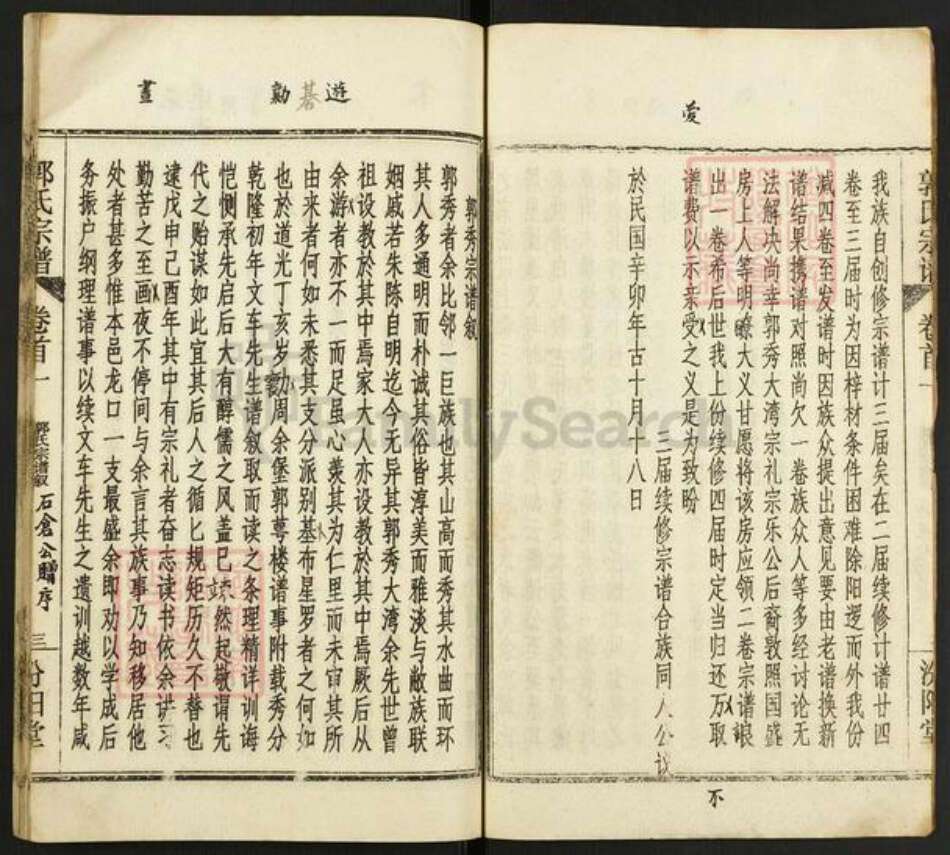 爱
郭氏宗谱
卷首一
汾阳堂
我族自创修宗谱计三届矣在二届续修计谱廿四
卷至三届时为因梓材条件困难除阳逻而外我份
减四卷至发谱时因族众提出意见要由老谱换新
谱结果携谱对照尚欠一卷族众人等多经讨论无
法解决尚幸郭秀大湾宗礼宗乐公后裔敦照国盛
房上人等明瞭大义甘愿将该房应领二卷宗谱
出一卷希后世我上份续修四届时定当归还万取
谱费以示亲受之义是为致盼
三届续修宗谱合族同人公议
於民国辛卯年古十月十八日
不
遊
碁
勷
晝
郭秀宗谱叙
郭秀者余比邻一巨族也其山高而秀其水曲而环
其人多通明而朴诚其俗皆淳美而雅淡与敝族联
姻戚若朱陈自明迄今无异其郭秀大湾余先世曾
祖设教於其中焉家大人亦设教於其中焉厥后从
余游者亦不一而足虽心羡其为仁里而未宙其所
由来者何如未悉其支分派别基布星罗者之何如
也於道光丁亥岁勷周余堡郭萼楼谱事附载秀分
乾隆初年文车先生谱叙取而读之条理精详训诲
恺恻承先启后大有醇儒之风盖已竦然起敬谓先
代之贻谋如此宜其后人之循匕规矩历久不替也
逮戊申己酉年其中有宗礼者奋志读书依余讲习
勤苦之至画夜不停间与余言其族事乃知移居他
处者甚多惟本邑龙口一支最盛余即劝以学成后
务振户纲理谱事以续文车先生之遗训越数年咸
郭氏宗谱
卷首一
郭氏宗谱叙
石倉公贈序
三
汾阳堂
FamilySearch